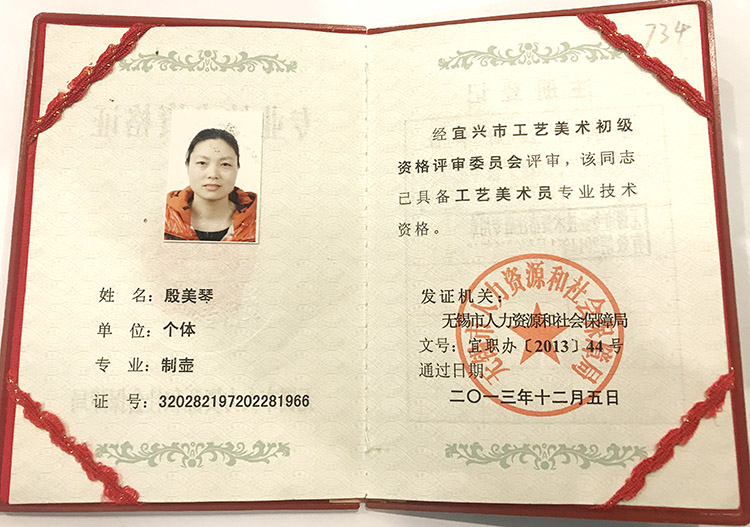 姓 名：殷美琴
单 位：个体
专 业：制壶
证 号：320282197202281966
734
经宜兴市工艺美术初级
资格评审委员会评审，该同志
已具备工艺美术员专业技术
资格。
发证机关：
无锡市人力资源和社会保障局
文号：宜职办〔2013〕44号
通过日期
二〇一三年十二月五日
无锡市人力资源和社会保障局